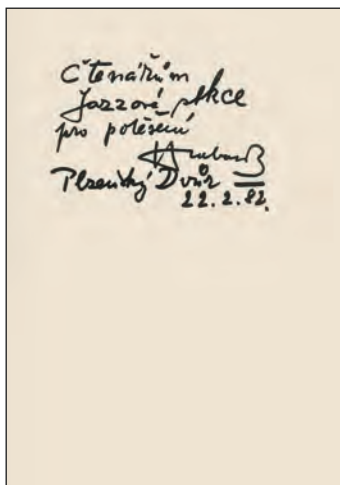 Čtenářům
Jazzové sekce
pro potěšení
Plzeňský Dvůr
22.2.82.